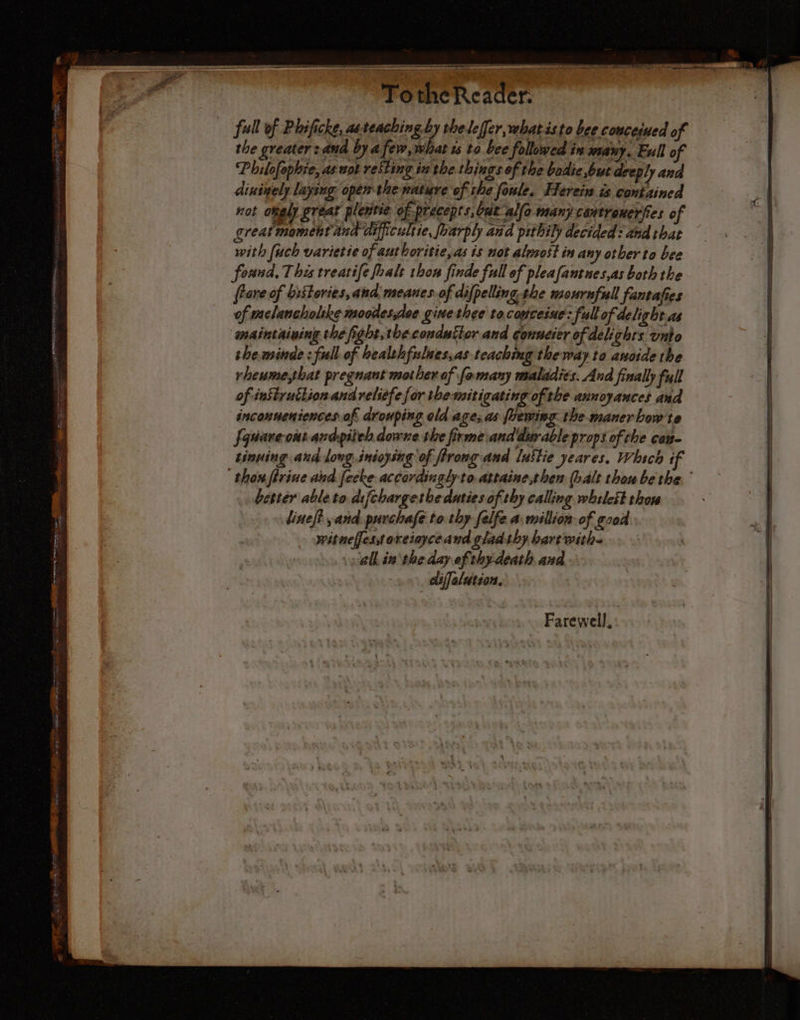 To the Reader.
full of Phisicke, as teaching by the lesser, what is to bee conceiued of
the greater: and by a few, what is to bee followed in many. Full of
Philosophie, as not resting in the things of the bodie, but deeply and
diuinely laying open the nature of the soule. Herein is contained
not onely great plentie of precepts, but also many controuersies of
great moment and difficultie, sharply and pithily decided: and that
with such varietie of authoritie, as is not almost in any other to bee
found. This treatise shalt thou finde full of pleasantnes, as both the
store of histories, and meanes of dispelling the mournfull fantasies
of melancholike moodes, doe giue thee to conceiue: full of delight as
maintaining the sight, the conductor and conueier of delights vnto
the minde: full of healthfulnes, as teaching the way to auoide the
rheume, that pregnant mother of so many maladies. And finally full
of instruction and reliefe for the mitigating of the annoyances and
inconueniences of drouping old age, as shewing the maner how to
square out and pitch downe the firme and durable props of the con-
tinuing and long inioying of strong and lustie yeares. Which if
thou striue and seeke accordingly to attaine, then shalt thou be the
better able to discharge the duties of thy calling whilest thou
liuest, and purchase to thy selfe a million of good
witnesses, to reioyce and glad thy hart with-
all in the day of thy death and
dissolution.
Farewell.